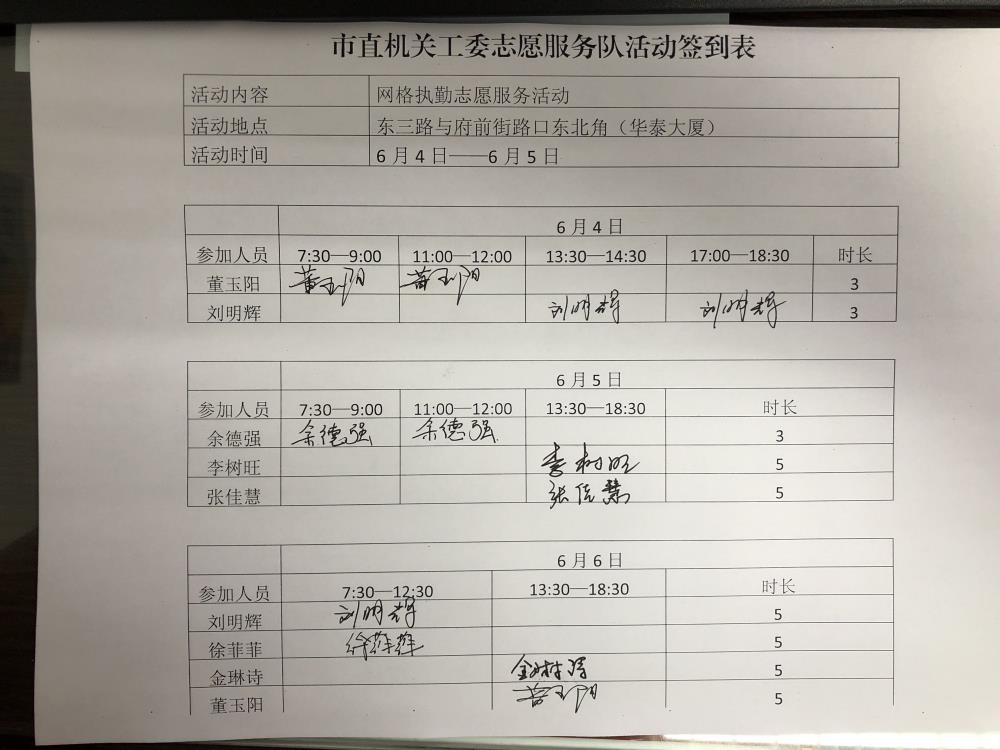 市直机关工委志愿服务队活动签到表
活动内容 网格执勤志愿服务活动
活动地点 东三路与府前街路口东北角（华泰大厦）
活动时间 6月4日——6月5日
6月4日
参加人员 7:30—9:00 11:00—12:00 13:30—14:30 17:00—18:30 时长
董玉阳 董玉阳 董玉阳 3
刘明辉 刘明辉 刘明辉 3
6月5日
参加人员 7:30—9:00 11:00—12:00 13:30—18:30 时长
余德强 余德强 余德强 3
李树旺 李树旺 5
张佳慧 张佳慧 5
6月6日
参加人员 7:30—12:30 13:30—18:30 时长
刘明辉 刘明辉 5
徐菲菲 徐菲菲 5
金琳诗 金琳诗 5
董玉阳 董玉阳 5